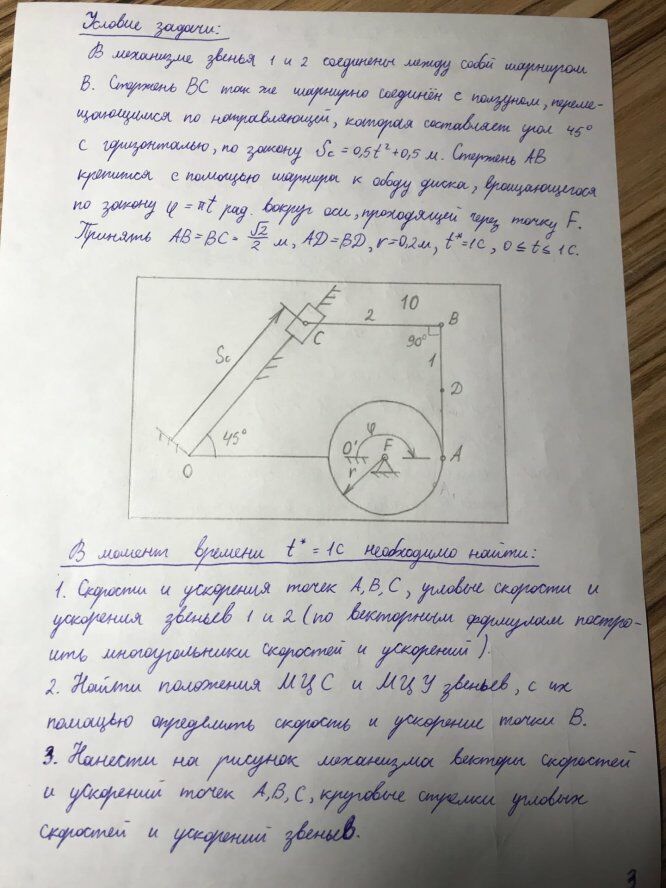 Условие задачи:
В механизме звенья 1 и 2 соединены между собой шарниром
В. Стержень ВС так же шарнирно соединён с ползуном, переме-
щающимся по направляющей, которая составляет угол 45°
с горизонталью, по закону Sc = 0,5t² + 0,5 м. Стержень АВ
крепится с помощью шарнира к ободу диска, вращающегося
по закону φ = πt рад. вокруг оси, проходящей через точку F.
Принять АВ = ВС = √2/2 м, АD = ВD, r = 0,2м, t* = 1с, 0 ≤ t ≤ 1с.
10
2
B
C
90°
Sc
1
D
φ
45°
O'
F
A
O
r
A₁
В момент времени t* = 1с необходимо найти:
1. Скорости и ускорения точек А, В, С, угловые скорости и
ускорения звеньев 1 и 2 (по векторным формулам постро-
ить многоугольники скоростей и ускорений).
2. Найти положения МЦС и МЦУ звеньев, с их
помощью определить скорость и ускорение точки В.
3. Нанести на рисунок механизма векторы скоростей
и ускорений точек А, В, С, круговые стрелки угловых
скоростей и ускорений звеньев.
3